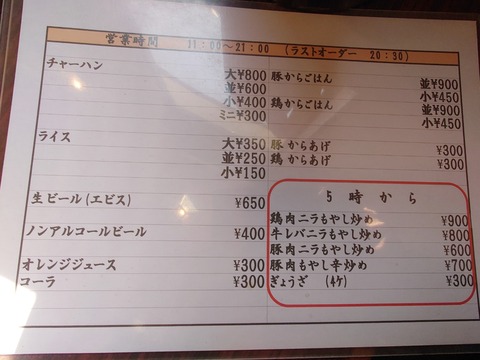 営業時間 11:00～21:00 (ラストオーダー 20:30)
チャーハン
大¥800
並¥600
小¥400
ミニ¥300
ライス
大¥350
並¥250
小¥150
生ビール(エビス) ¥650
ノンアルコールビール ¥400
オレンジジュース ¥300
コーラ ¥300
豚からごはん
並¥900
小¥450
鶏からごはん
並¥900
小¥450
豚からあげ ¥300
鶏からあげ ¥300
5時から
鶏肉ニラもやし炒め ¥900
牛レバニラもやし炒め ¥800
豚肉ニラもやし炒め ¥600
豚肉もやし辛炒め ¥700
ぎょうざ (4ケ) ¥300